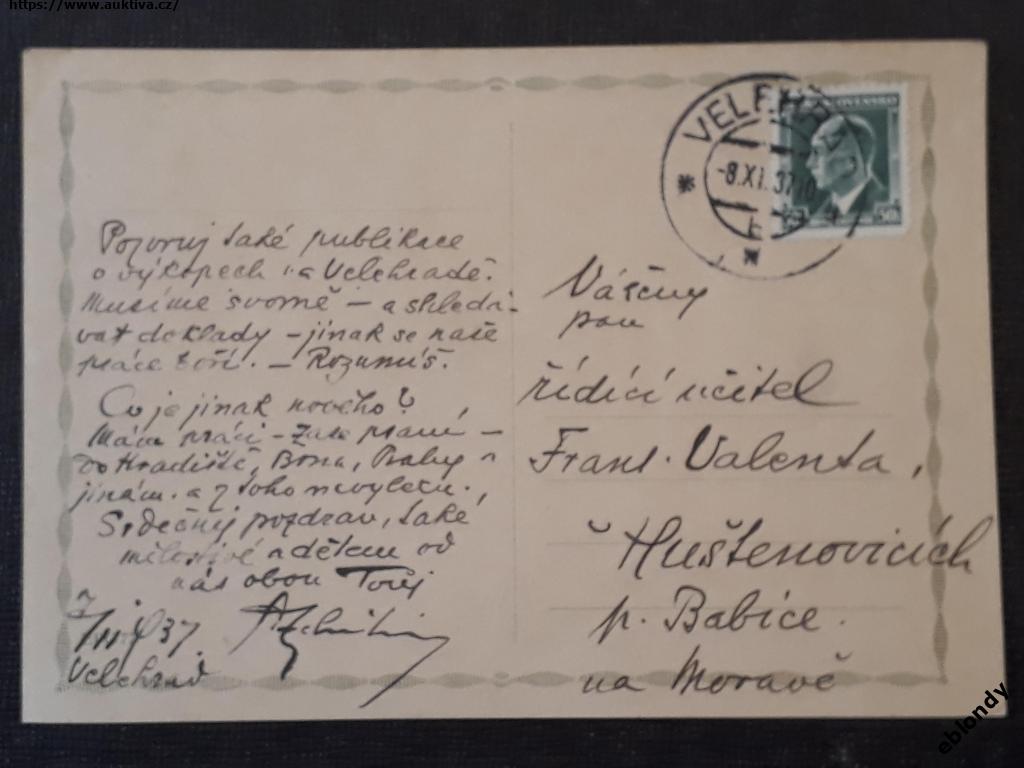 https://www.aukiva.cz/
VELEHRAD
-8.XI.37
50h
Pozoruj také publikace
o výkopech na Velehradě.
Musíme svorně - a shledá-
vat doklady - jinak se naše
práce boří. - Rozumíš.
Co je jinak nového?
Mám práci - zase psaní -
do Hradiště, Brna, Prahy a
jinám. a z toho nevylezu.
Srdečný pozdrav, také
milostivé a dětem od
nás obou Tvůj
1937
Velehrad
Vážený
pan
řídící učitel
Frant. Valenta,
v Huštěnovicích
p. Babice.
na Moravě
eblondy